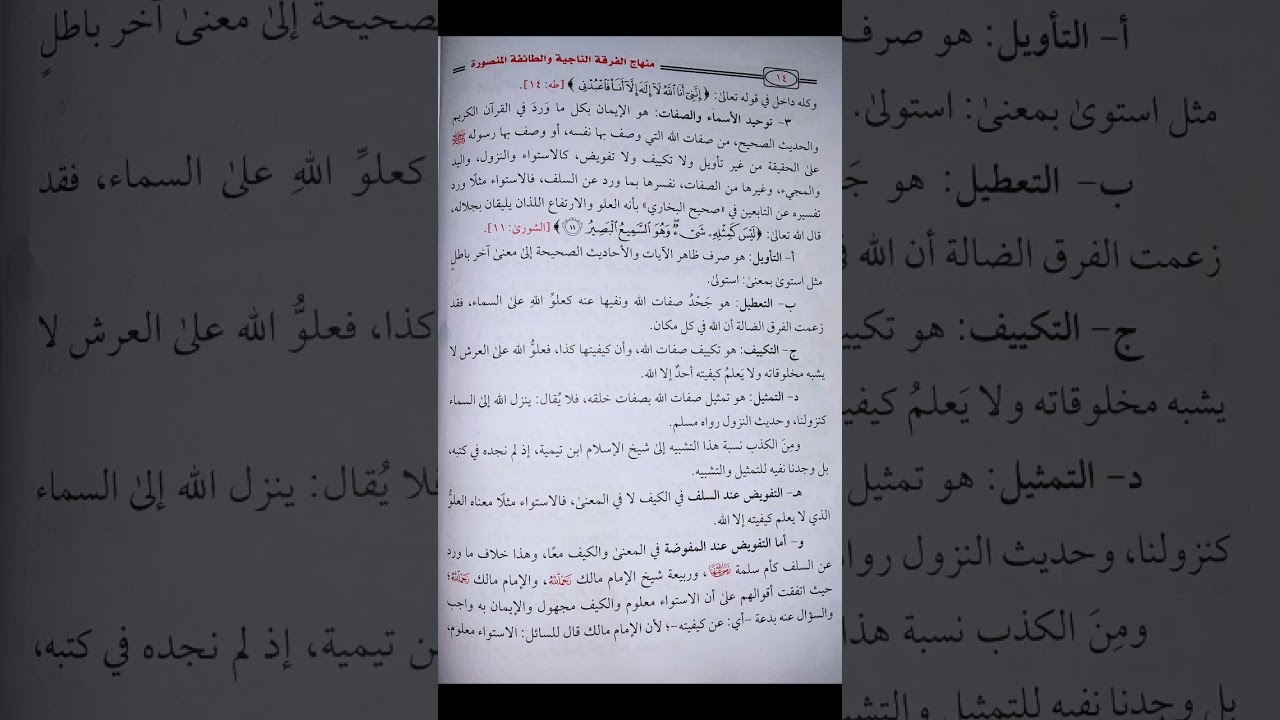 ١٤
منهاج الفرقة الناجية والطائفة المنصورة
وكله داخل في قوله تعالىٰ: ﴿إِنَّنِيٓ أَنَا ٱللَّهُ لَآ إِلَٰهَ إِلَّآ أَنَا۠ فَٱعْبُدْنِي﴾ [طه: ١٤].
٣- توحيد الأسماء والصفات: هو الإيمان بكل ما وَردَ في القرآن الكريم
والحديث الصحيح، من صفات الله التي وصف بها نفسه، أو وصف بها رسوله ﷺ
علىٰ الحقيقة من غير تأويل ولا تكييف ولا تفويض، كالاستواء والنزول، واليد
والمجيء، وغيرها من الصفات، نفسرها بما ورد عن السلف، فالاستواء مثلًا ورد
تفسيره عن التابعين في «صحيح البخاري» بأنه العلو والارتفاع اللذان يليقان بجلاله،
قال الله تعالىٰ: ﴿لَيْسَ كَمِثْلِهِۦ شَىْءٌ ۖ وَهُوَ ٱلسَّمِيعُ ٱلْبَصِيرُ ۝١١﴾ [الشورىٰ: ١١].
أ- التأويل: هو صرف ظاهر الآيات والأحاديث الصحيحة إلىٰ معنىٰ آخر باطلٍ
مثل استوىٰ بمعنىٰ: استولىٰ.
ب- التعطيل: هو جَحْدُ صفات الله ونفيها عنه كعلوِّ اللهِ علىٰ السماء، فقد
زعمت الفرق الضالة أن الله في كل مكان.
ج- التكييف: هو تكييف صفات الله، وأن كيفيتها كذا، فعلوُّ الله علىٰ العرش لا
يشبه مخلوقاته ولا يَعلمُ كيفيته أحدٌ إلا الله.
د- التمثيل: هو تمثيل صفات الله بصفات خلقه، فلا يُقال: ينزل الله إلىٰ السماء
كنزولنا، وحديث النزول رواه مسلم.
ومِنَ الكذب نسبة هذا التشبيه إلىٰ شيخ الإسلام ابن تيمية، إذ لم نجده في كتبه،
بل وجدنا نفيه للتمثيل والتشبيه.
هـ- التفويض عند السلف في الكيف لا في المعنىٰ، فالاستواء مثلًا معناه العلوُّ
الذي لا يعلم كيفيته إلا الله.
و- أما التفويض عند المفوضة في المعنىٰ والكيف معًا، وهذا خلاف ما ورد
عن السلف كأم سلمة رضي الله عنها، وربيعة شيخ الإمام مالك رحمه الله، والإمام مالك رحمه الله؛
حيث اتفقت أقوالهم علىٰ أن الاستواء معلوم والكيف مجهول والإيمان به واجب
والسؤال عنه بدعة -أي: عن كيفيته-؛ لأن الإمام مالك قال للسائل: الاستواء معلوم،